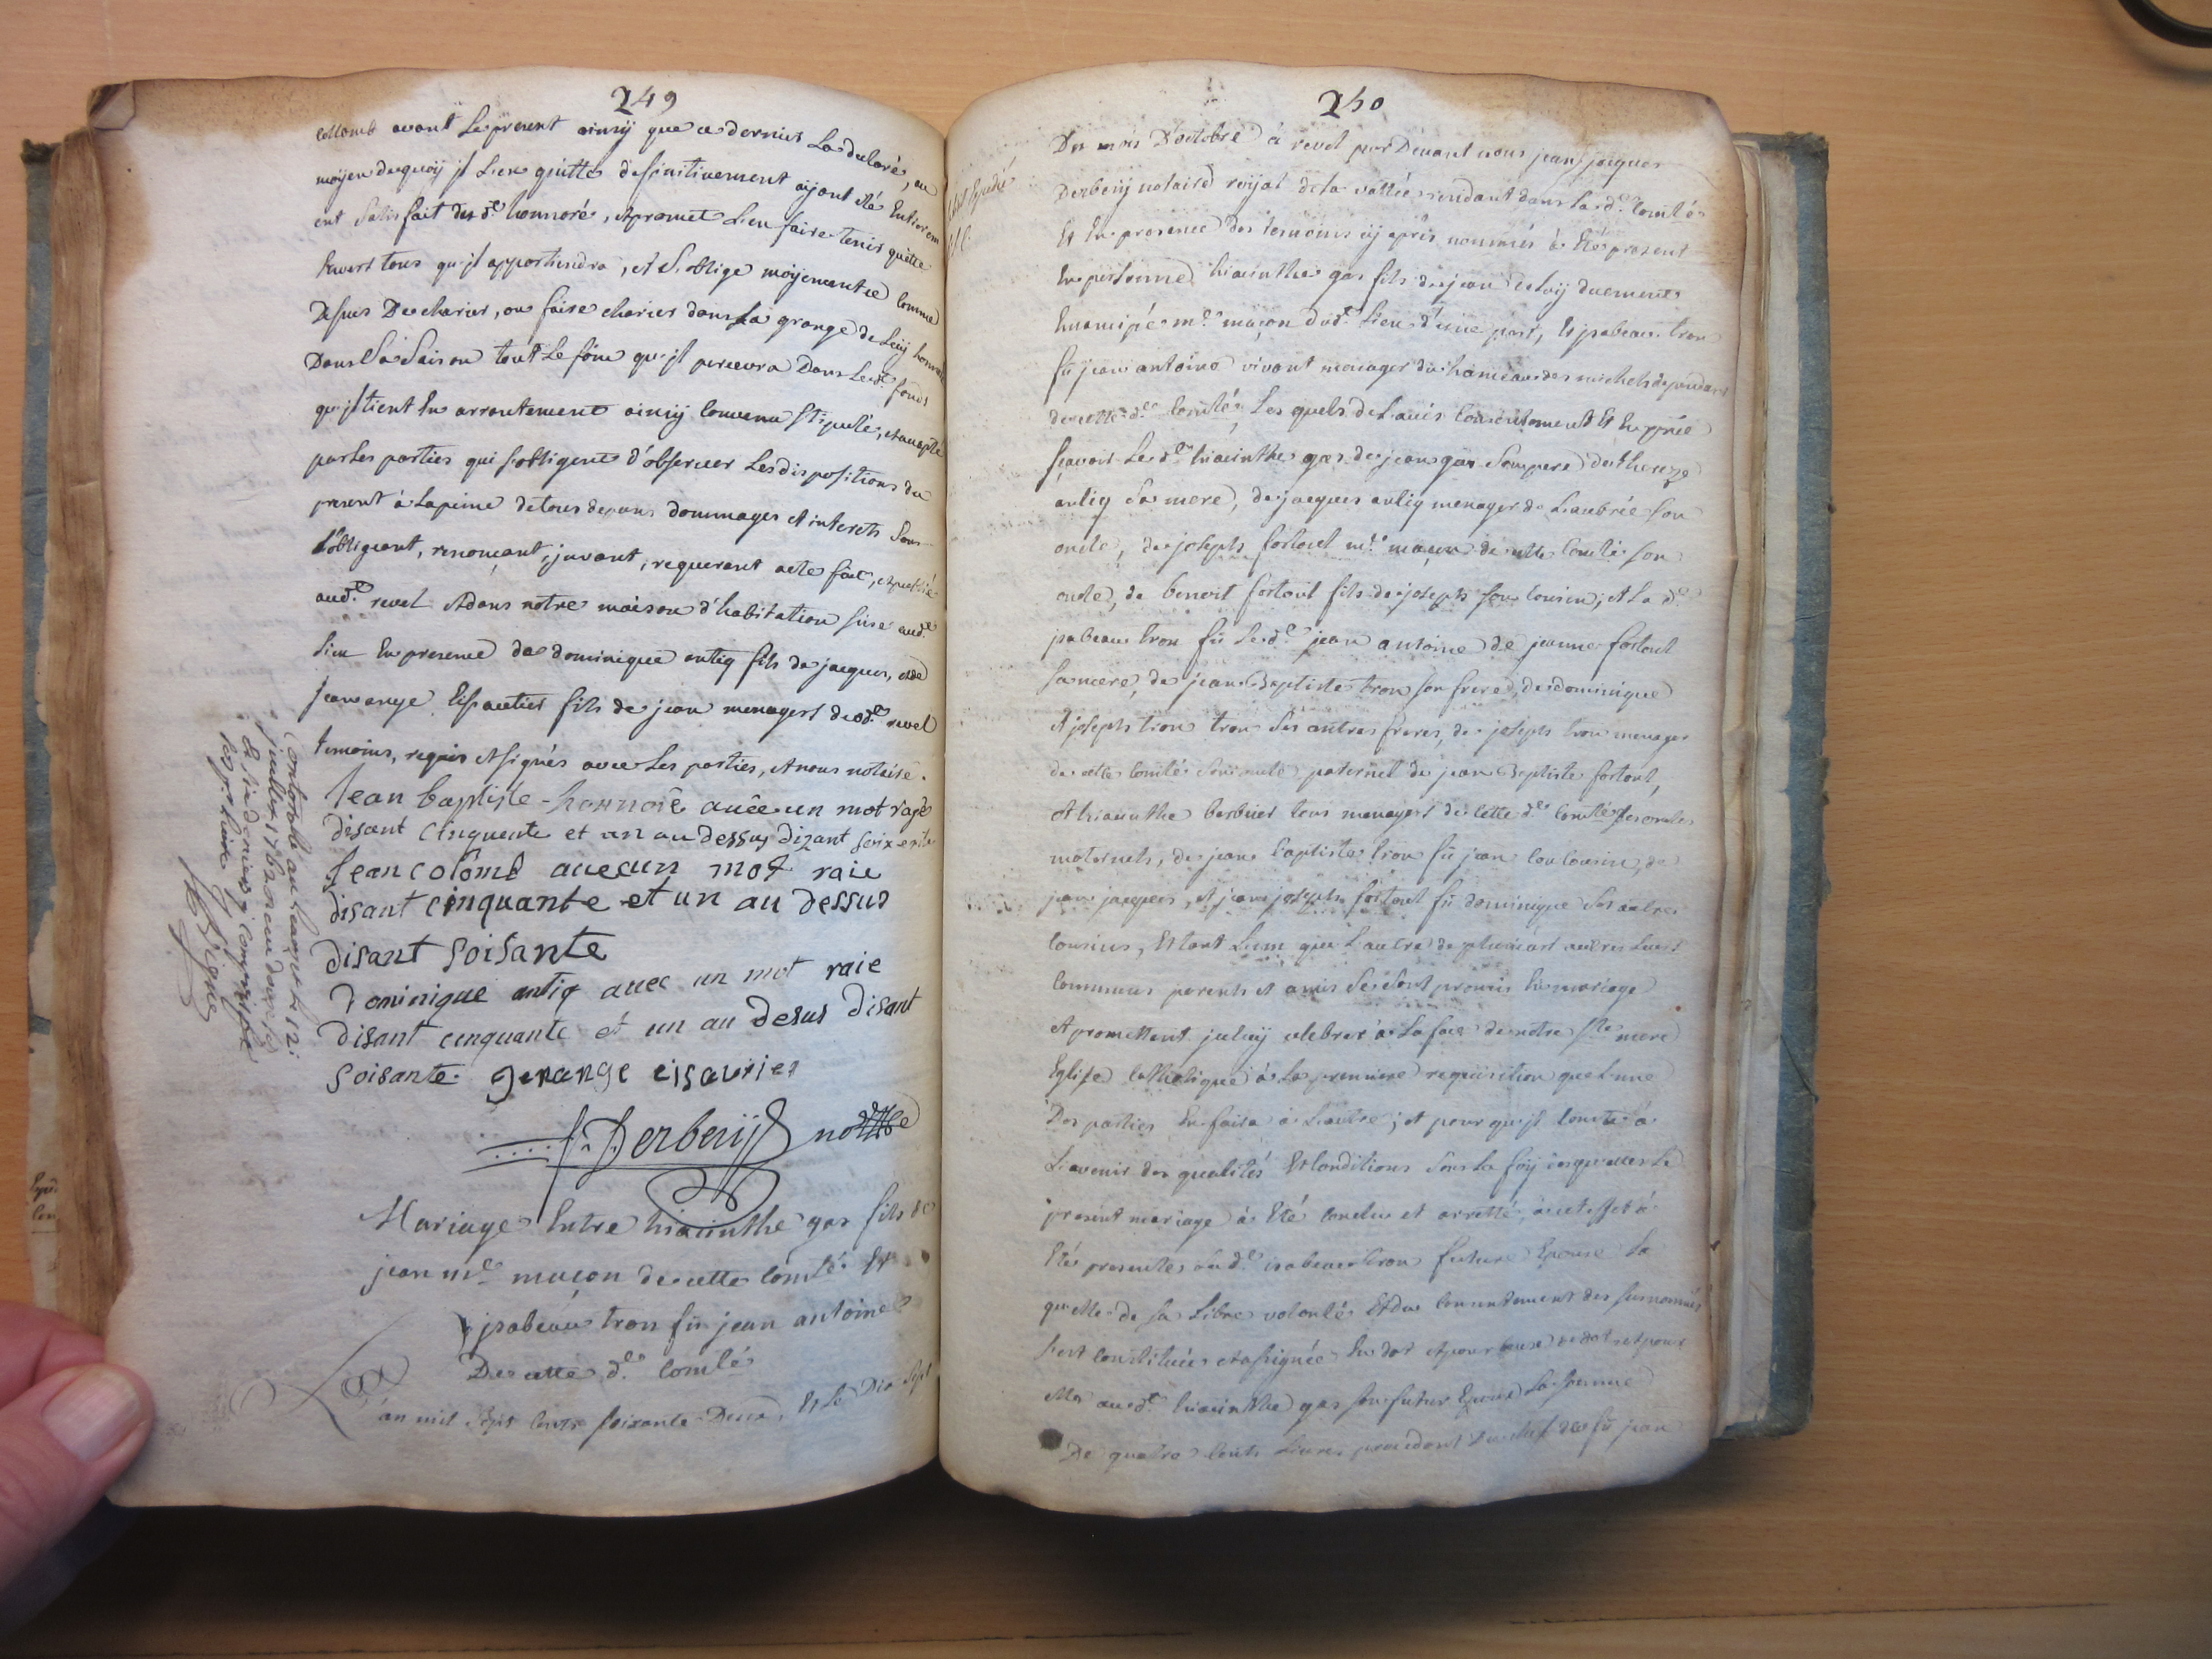 249
collomb avant Le present ainsy que ce dernier La declaré, au
moÿen dequoÿ jl L'en quitte definitivement aÿant eté Entierem
ent Satisfait dud.t honnoré, et promet L'en faire tenir quitte
Envers tous qu'jl appartiendra, et S'oblige moÿenant ce comme
Dessus De charier, ou faire charier dans La grange de Luÿ honnoré
Dans La Saison tout Le foin qu'jl percevra Dans Led.t fonds
qu'jl tient En arrentement ainsÿ Convenu Stipulé, et accepté
par Les parties qui s'obligent d'observer Les dispositions du
present à La peine de tous depans dommages et interets Sous
L'obligeant, renonçant, jurant, requerant acte fait, et publié
aud.t revel et dans notre maison d'habitation sise aud.t
Lieu En presence de dominique antiq fils de jacques, et de
jean ange Eisautier fils de jean menagers dud.t revel
temoins, requis et signés avec Les parties, et nous notaire.
Jean baptiste - honnore avec un mot rayé
disant cinquente et un au dessus dizant soixente
Jean colomb avec un mot raie
disant cinquante et un au dessus
disant soisante
Dominique antiq avec un mot raie
Disant cinquante et un au desus disant
soisante. jenange eisautier
J. J. Derbeuÿ no.re
Controlé au Lauzet le 12:
Mariage Entre hiacinthe gas fils de
jean m.e maçon de cette comté Et
jsabeau tron fû jean antoine
De cette d.e Comté
L'an mil Sept Cents soixante Deux, Et Le Dix Sept
250
Du mois D'octobre à revel par Devant nous jean jacques
Derbeuÿ notaire roÿal de la vallée residant dans La d.e Comté
Et En presence des temoins cÿ après nommés à Eté present
En personne hiacinthe gas fils de jean de Luÿ duement
Emancipé m.e maçon dud.t Lieu d'une part, Et jsabeau tron
fû jean antoine vivant menager du hameau des michels dependant
de cette d.e Comté, Les quels de L'avis Consentement Et En priè
sçavoir Le d.t hiacinthe gas de jean gas Son pere de thereze
antiq Sa mere, de jacques antiq menager de Laubrée Son
oncle, de joseph fortoul m.e maçon de cette Comté son
oncle, de benoit fortoul fils de joseph son Cousin, et La d.e
jsabeau tron fû Led.t jean antoine de jeanne fortoul
Sa mere, de jean Baptiste tron son frere, de dominique
et joseph tron tron Ses autres freres, de joseph tron menager
de cette Comté Son oncle paternel de jean Baptiste fortoul,
et hiacinthe barbier tous menagers de Cette d.e Comté ses oncles
maternels, de jean baptiste tron fû jean Son Cousin, de
jean jacques, et jean joseph fortoul fû dominique Ses autres
Cousins, Et tant L'un que L'autre de plusieurs autres Leurs
Communs parents et amis Se Sont promis En mariage
et promettent jceluÿ celebrer à La face de notre s.te mere
Eglise Catholique à La premiere requisition que L'une
Des parties En faira à L'autre; et pour qu'jl Conste à
L'avenir des qualités Et Conditions Sous La foÿ desquelles Le
present mariage à Eté Conclu et arretté, à cet effet à
Eté presente La d.e isabeau tron future Epouse La
quelle de sa Libre volonté Et du Consentement des surnommés
s'est Constituée et assignée En dot et pour Cause de dot et pour
elle aud.t hiacinthe gas son futur Epoux La Somme
De quatre Cents Livres procedant Du chef de fû jean